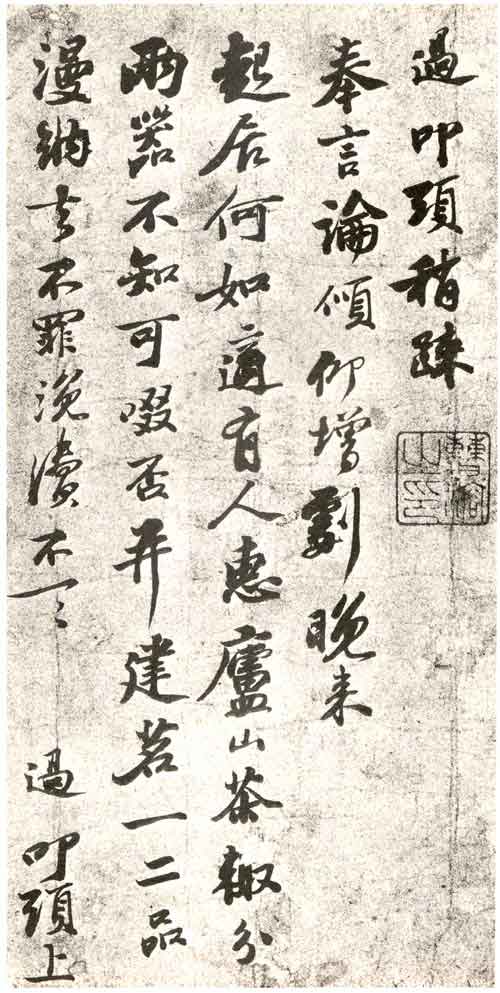 過叩頭稍疎
奉言論傾仰增劇晚来
起居何如適有人惠廬山茶輙分
兩器不知可啜否并建茗一二品
漫納去不罪浼瀆不一一 過 叩頭上